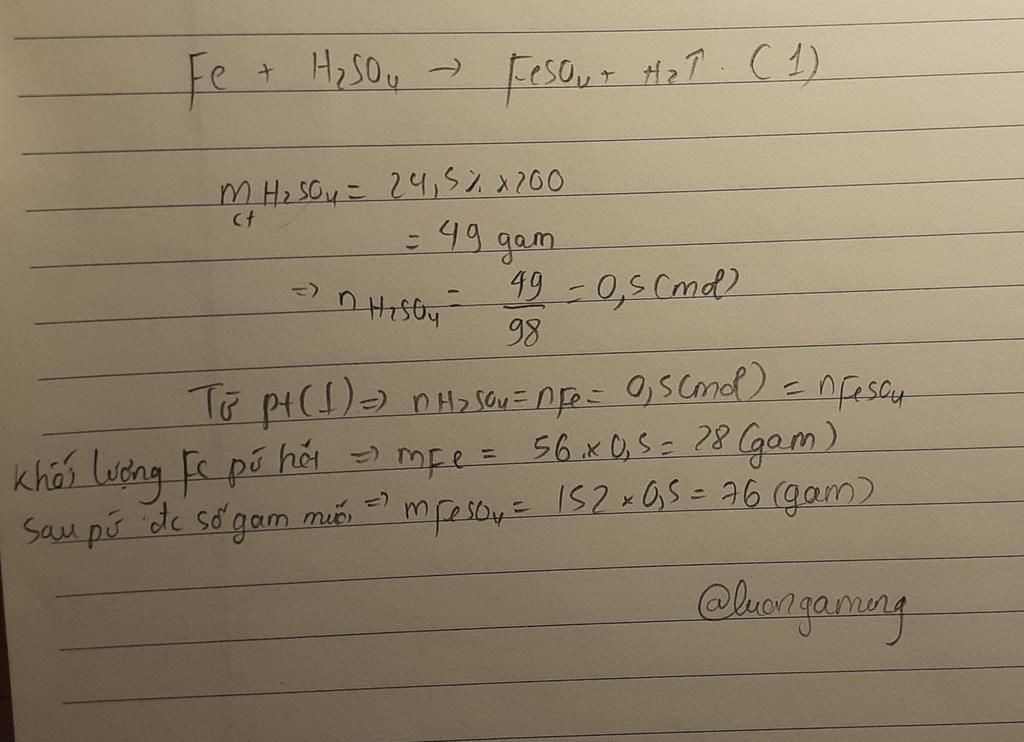 Fe + H2SO4 → FeSO4 + H2↑. (1)
mH2SO4 = 24,5% x 200
ct
= 49 gam
=> nH2SO4 = 49/98 = 0,5 (mol)
Từ pt(1) => nH2SO4 = nFe = 0,5 (mol) = nFeSO4
Khối lượng Fe pứ hết => mFe = 56 x 0,5 = 28 (gam)
Sau pứ đc số gam muối => mFeSO4 = 152 x 0,5 = 76 (gam)
@luongameng